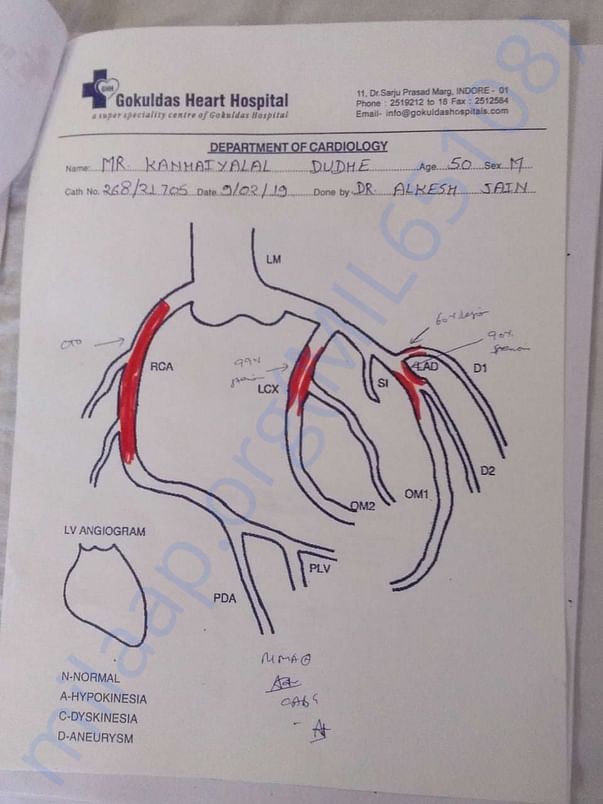 GHH
Gokuldas Heart Hospital
a super speciality centre of Gokuldas Hospital
11, Dr.Sarju Prasad Marg, INDORE - 01
Phone : 2519212 to 16 Fax : 2512584
Email- info@gokuldashospitals.com
DEPARTMENT OF CARDIOLOGY
Name: MR. KANHAIYALAL DUDHE Age 50 Sex M
Cath No. 268/21705 Date 9/02/19 Done by DR. ALKESH JAIN
LM
60%
CTO
90%
RCA
99%
LCX
SI
LAD
D1
D2
OM2
OM1
LV ANGIOGRAM
PLV
PDA
N-NORMAL
A-HYPOKINESIA
C-DYSKINESIA
D-ANEURYSM
CABG
milaap.org(MIL65108)